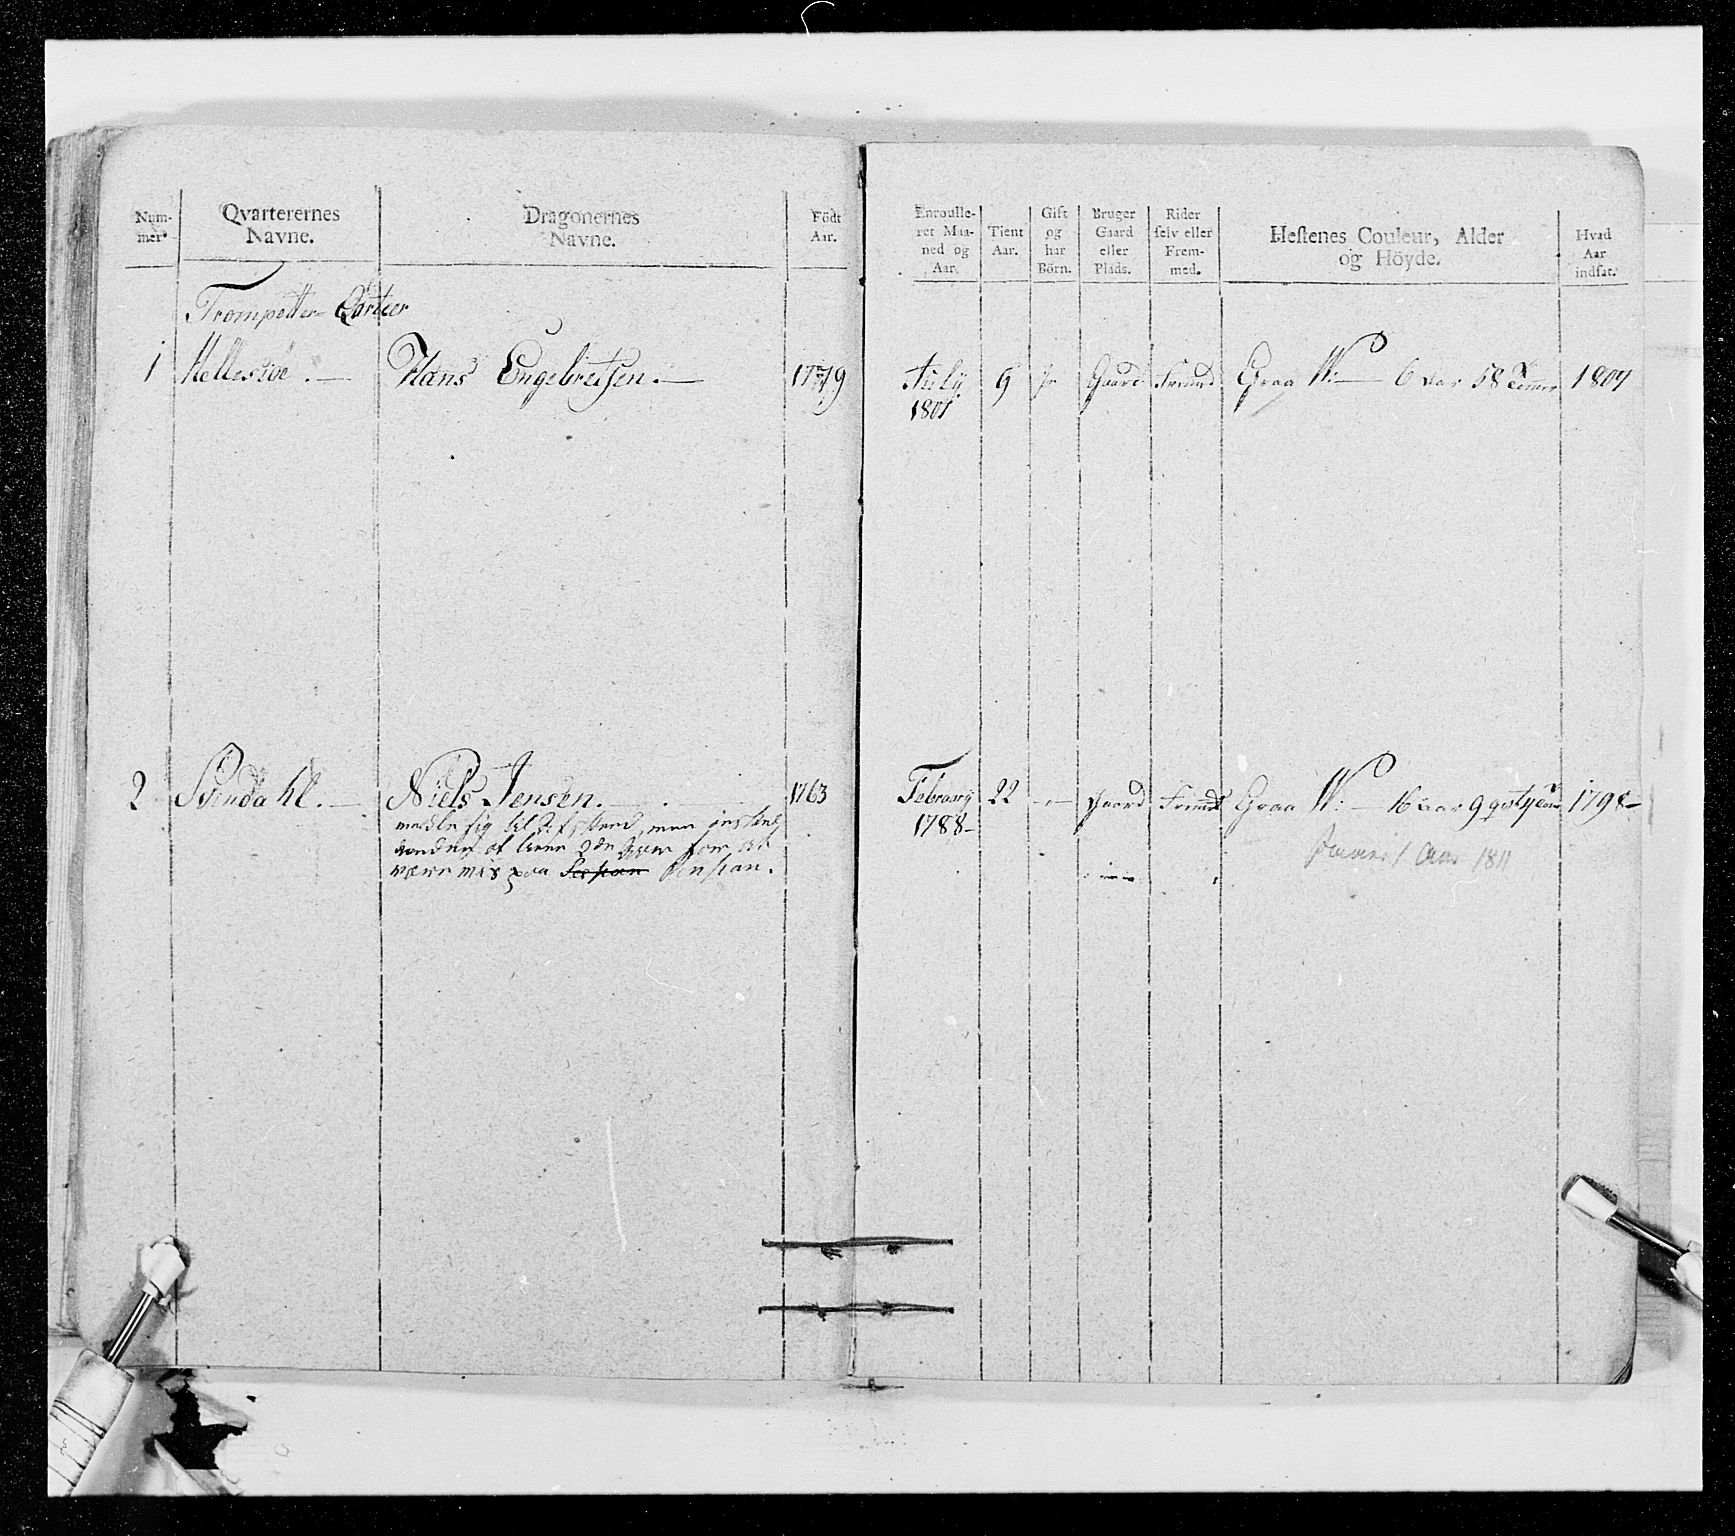 Num-
mer.
Qvarterernes
Navne.
Dragonernes
Navne.
Födt
Aar.
Enroulle-
ret Maa-
ned og
Aar.
Tient
Aar.
Gift
og
har
Börn.
Bruger
Gaard
eller
Plads.
Rider
selv eller
Frem-
med.
Hestenes Couleur, Alder
og Höyde.
Hvad
Aar
indsat.
Trompetter Qarteer
1 Hellesiøe. Hans Engebretsen. 1779 July 9 Gaard Fremd Graa W: 6 aar 58 1807
1801
2 Svindahl. Niels Jensen. 1763 February 22 Gaard Fremd Graa W: 16 aar 9 1798
1788
sig til men
af
paa Sespon
1 Aar 1811